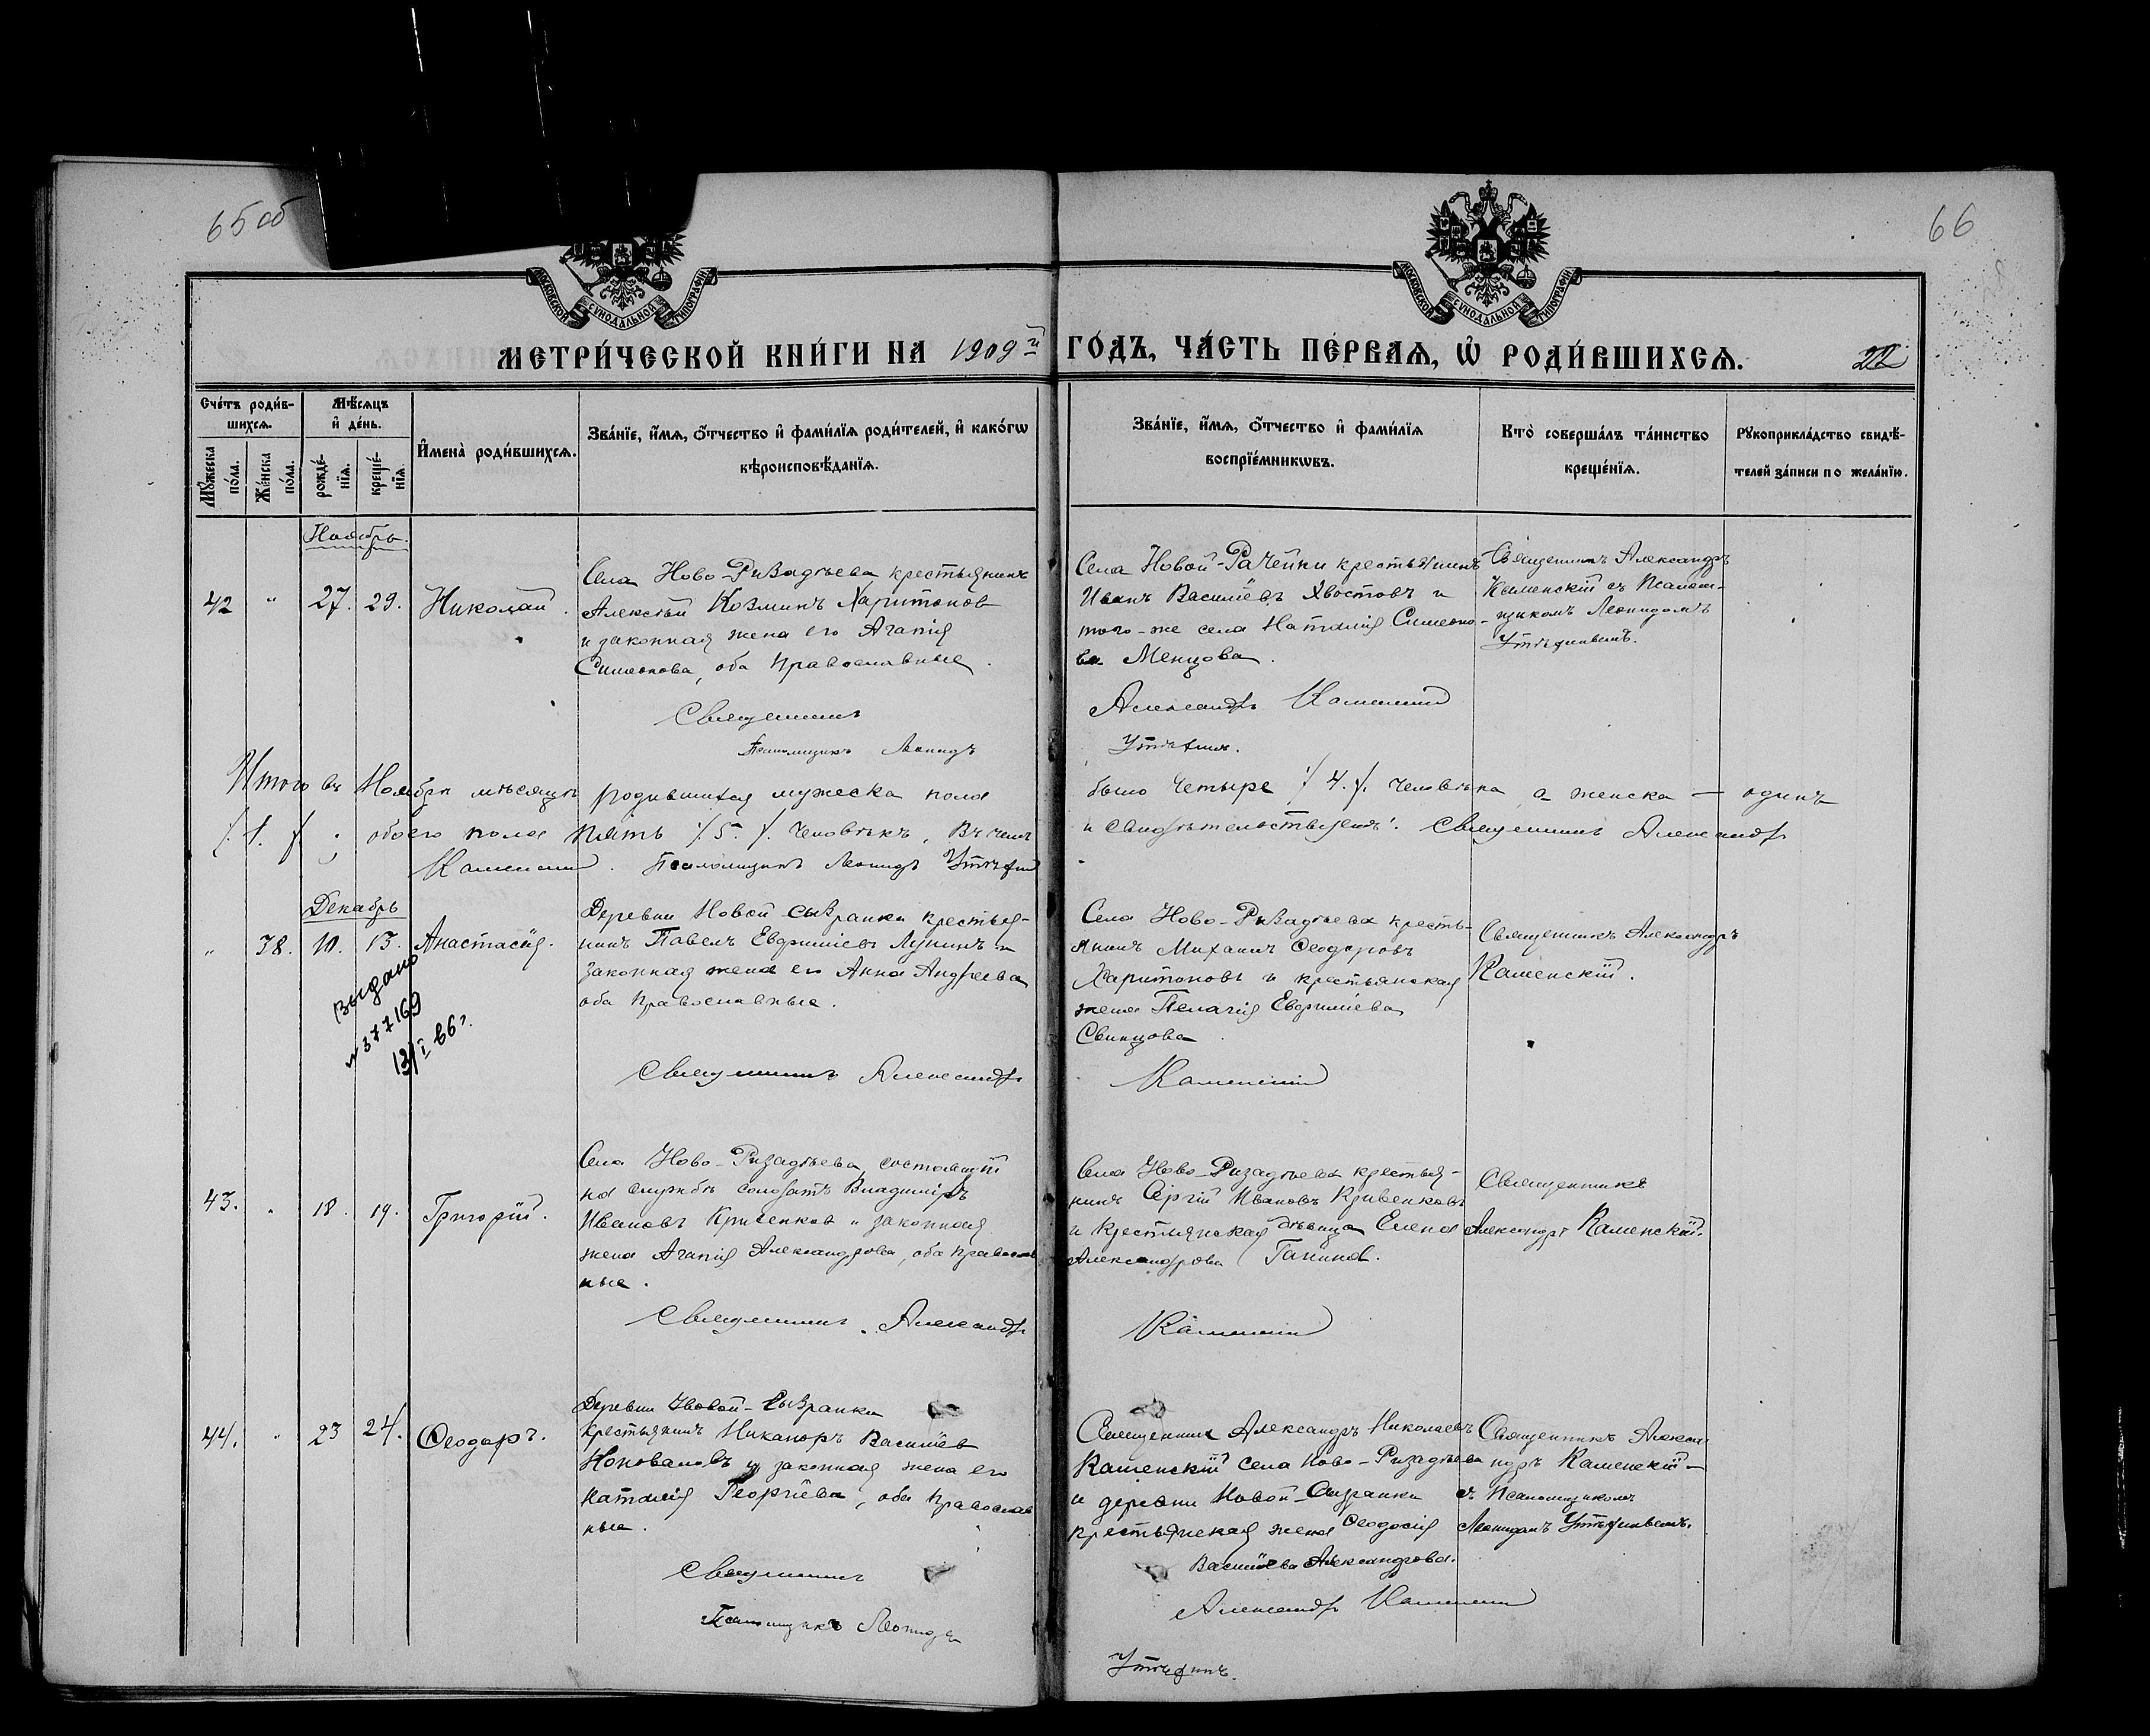 65 об
66
МОСКОВСКОЙ СѴНОДАЛЬНОЙ ТИПОГРАФІИ
МОСКОВСКОЙ СѴНОДАЛЬНОЙ ТИПОГРАФІИ
МЕТРИ́ЧЕСКОЙ КНИ́ГИ НА 1909й ГО́ДЪ, ЧА́СТЬ ПЕ́РВАѦ, Ѡ҆ РОДИ́ВШИХСѦ.
22
Сче́тъ роди́в-
шихсѧ.
Мꙋ́жеска по́ла.
Же́нска по́ла.
Мѣ́сѧцъ
и҆ де́нь.
рожде́-
нїѧ.
креще́-
нїѧ.
И҆мена̀ роди́вшихсѧ.
Зва́нїе, и҆́мѧ, ѻ҆́тчество и҆ фами́лїѧ роди́телей, и҆ како́гѡ
вѣроисповѣ́данїѧ.
Зва́нїе, и҆́мѧ, ѻ҆́тчество и҆ фами́лїѧ
воспрїе́мникѡвъ.
Кто̀ соверша́лъ та́инство
креще́нїѧ.
Рꙋкоприкла́дство свидѣ́-
телей за́писи по жела́нїю.
Ноябрь.
42 " 27. 29. Николай.
Села Ново-Ризадѣева крестьянинъ
Алексѣй Козминъ Харитонов
и законная жена его Агапія
Симеонова, оба православные.
Села Новой-Рачейки крестьянинъ
Иванъ Василіевъ Хвостовъ и
того-же села Наталія Симеоно-
ва Менцова.
Священникъ Александръ
Каменскій съ Псалом-
щикомъ Леонидомъ
Утѣхинымъ.
Священникъ Александръ Каменскій
Псаломщикъ Леонидъ Утѣхинъ.
Итого въ Ноябрѣ мѣсяцѣ родившихся мужеска пола было четыре /4./ человѣка, а женска — одинъ
/1./; обоего пола пять /5./ человѣкъ, въ чемъ и свидѣтельствуемъ: Священникъ Александръ
Каменскій. Псаломщикъ Леонидъ Утѣхинъ
Декабрь
" 38. 10. 13. Анастасія.
Деревни Новой-Сызранки крестья-
нинъ Павелъ Евфиміевъ Лунинъ и
законная жена его Анна Андреева
оба православные.
Села Ново-Ризадѣева кресть-
янинъ Михаилъ Ѳеодоровъ
Харитоновъ и крестьянская
жена Пелагія Евфиміева
Свинцова.
Священникъ Александръ
Каменскій.
выдано
№ 377169
13/I 66 г.
Священникъ Александръ Каменскій
43. " 18. 19. Григорій.
Села Ново-Ризадѣева, состоящій
на службѣ солдатъ Владиміръ
Ивановъ Кривенков и законная
жена Агапія Александрова, оба православ
ные.
Села Ново-Ризадѣева крестья-
нинъ Сергій Ивановъ Кривенковъ
и крестьянская дѣвица Елена
Александрова Ганина.
Священникъ
Александръ Каменскій.
Священникъ Александръ Каменскій
44. " 23 24. Ѳеодоръ.
Деревни Новой-Сызранки
крестьянинъ Никаноръ Василіев
Коноваловъ и законная жена его
Наталія Георгіева, оба православ
ные.
Священник Александръ Николаевъ
Каменскій села Ново-Ризадѣева
и деревни Новой-Сызранки
крестьянская жена Ѳеодосія
Василіева Александрова.
Священникъ Алекса-
ндръ Каменскій —
съ Псаломщикомъ
Леонидомъ Утѣхинымъ.
Священникъ Александръ Каменскій
Псаломщикъ Леонидъ
Утѣхинъ.